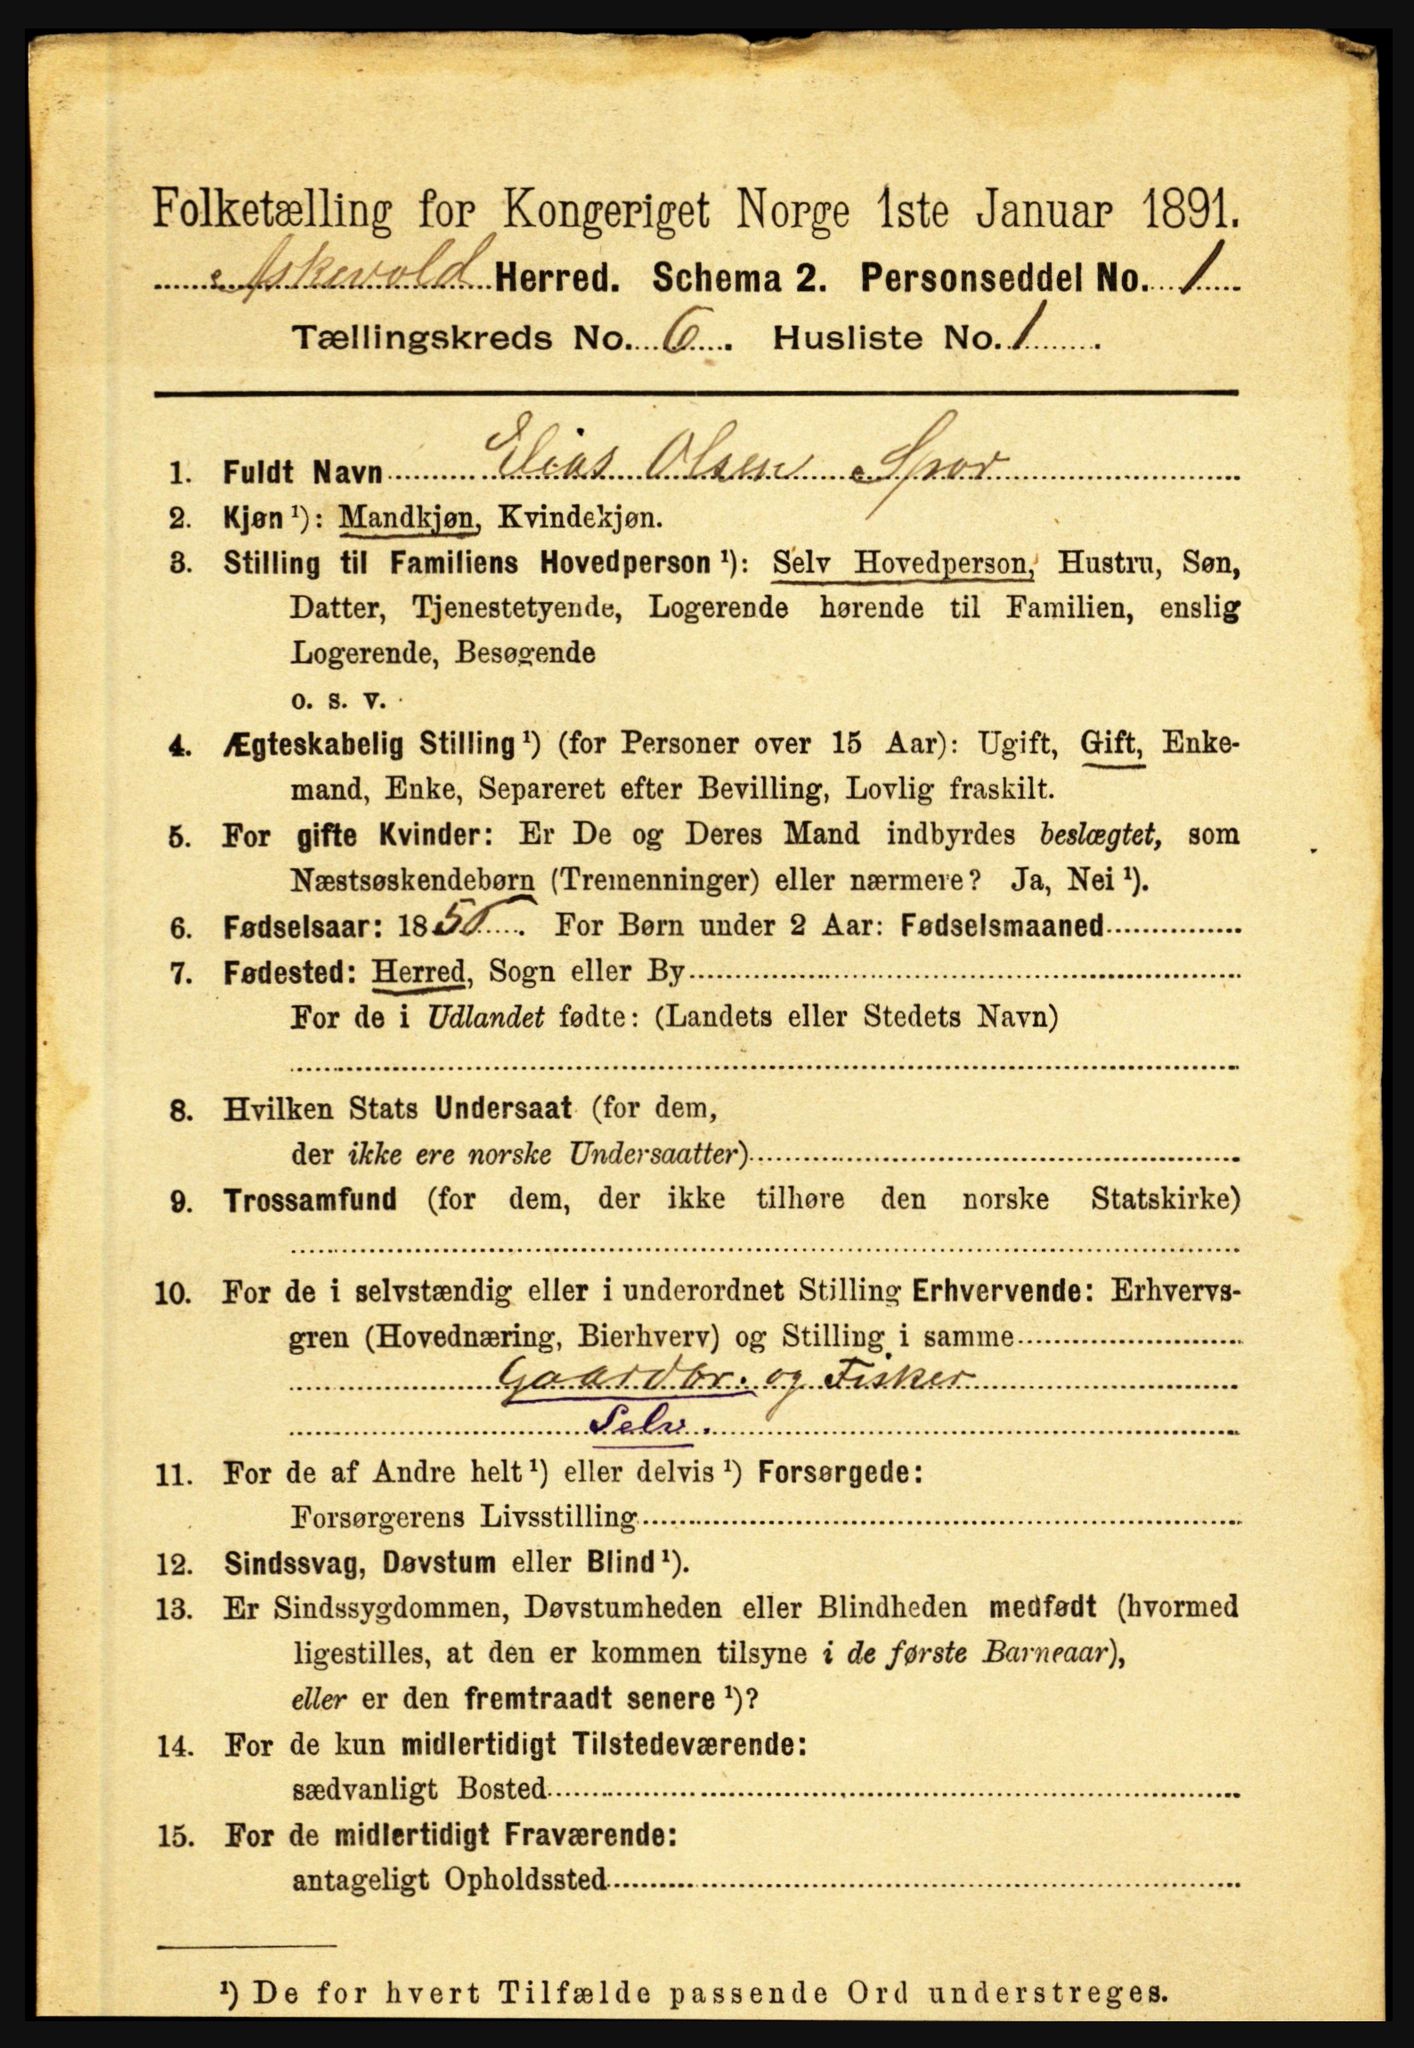 Folketælling for Kongeriget Norge 1ste Januar 1891.
Askevold Herred. Schema 2. Personseddel No. 1
Tællingskreds No. 6. Husliste No. 1.
1. Fuldt Navn Elias Olsen
2. Kjøn ¹): Mandkjøn, Kvindekjøn.
3. Stilling til Familiens Hovedperson ¹): Selv Hovedperson, Hustru, Søn,
Datter, Tjenestetyende, Logerende hørende til Familien, enslig
Logerende, Besøgende
o. s. v.
4. Ægteskabelig Stilling ¹) (for Personer over 15 Aar): Ugift, Gift, Enke-
mand, Enke, Separeret efter Bevilling, Lovlig fraskilt.
5. For gifte Kvinder: Er De og Deres Mand indbyrdes beslægtet, som
Næstsøskendebørn (Tremenninger) eller nærmere? Ja, Nei ¹).
6. Fødselsaar: 1855. For Børn under 2 Aar: Fødselsmaaned
7. Fødested: Herred, Sogn eller By
For de i Udlandet fødte: (Landets eller Stedets Navn)
8. Hvilken Stats Undersaat (for dem,
der ikke ere norske Undersaatter)
9. Trossamfund (for dem, der ikke tilhøre den norske Statskirke)
10. For de i selvstændig eller i underordnet Stilling Erhvervende: Erhvervs-
gren (Hovednæring, Bierhverv) og Stilling i samme
Gaardbr. og Fisker
Selv.
11. For de af Andre helt ¹) eller delvis ¹) Forsørgede:
Forsørgerens Livsstilling
12. Sindssvag, Døvstum eller Blind ¹).
13. Er Sindssygdommen, Døvstumheden eller Blindheden medfødt (hvormed
ligestilles, at den er kommen tilsyne i de første Barneaar),
eller er den fremtraadt senere ¹)?
14. For de kun midlertidigt Tilstedeværende:
sædvanligt Bosted
15. For de midlertidigt Fraværende:
antageligt Opholdssted
¹) De for hvert Tilfælde passende Ord understreges.